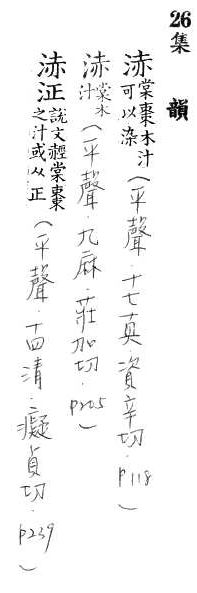 26 集 韻
浾 棠棗木汁可以染（平聲．十七真．資辛切．p118）
浾 棠木汁（平聲．九麻．莊加切．p205）
浾泟 說文䞓棠棗之汁或从正（平聲．十四清．癡貞切．p239）